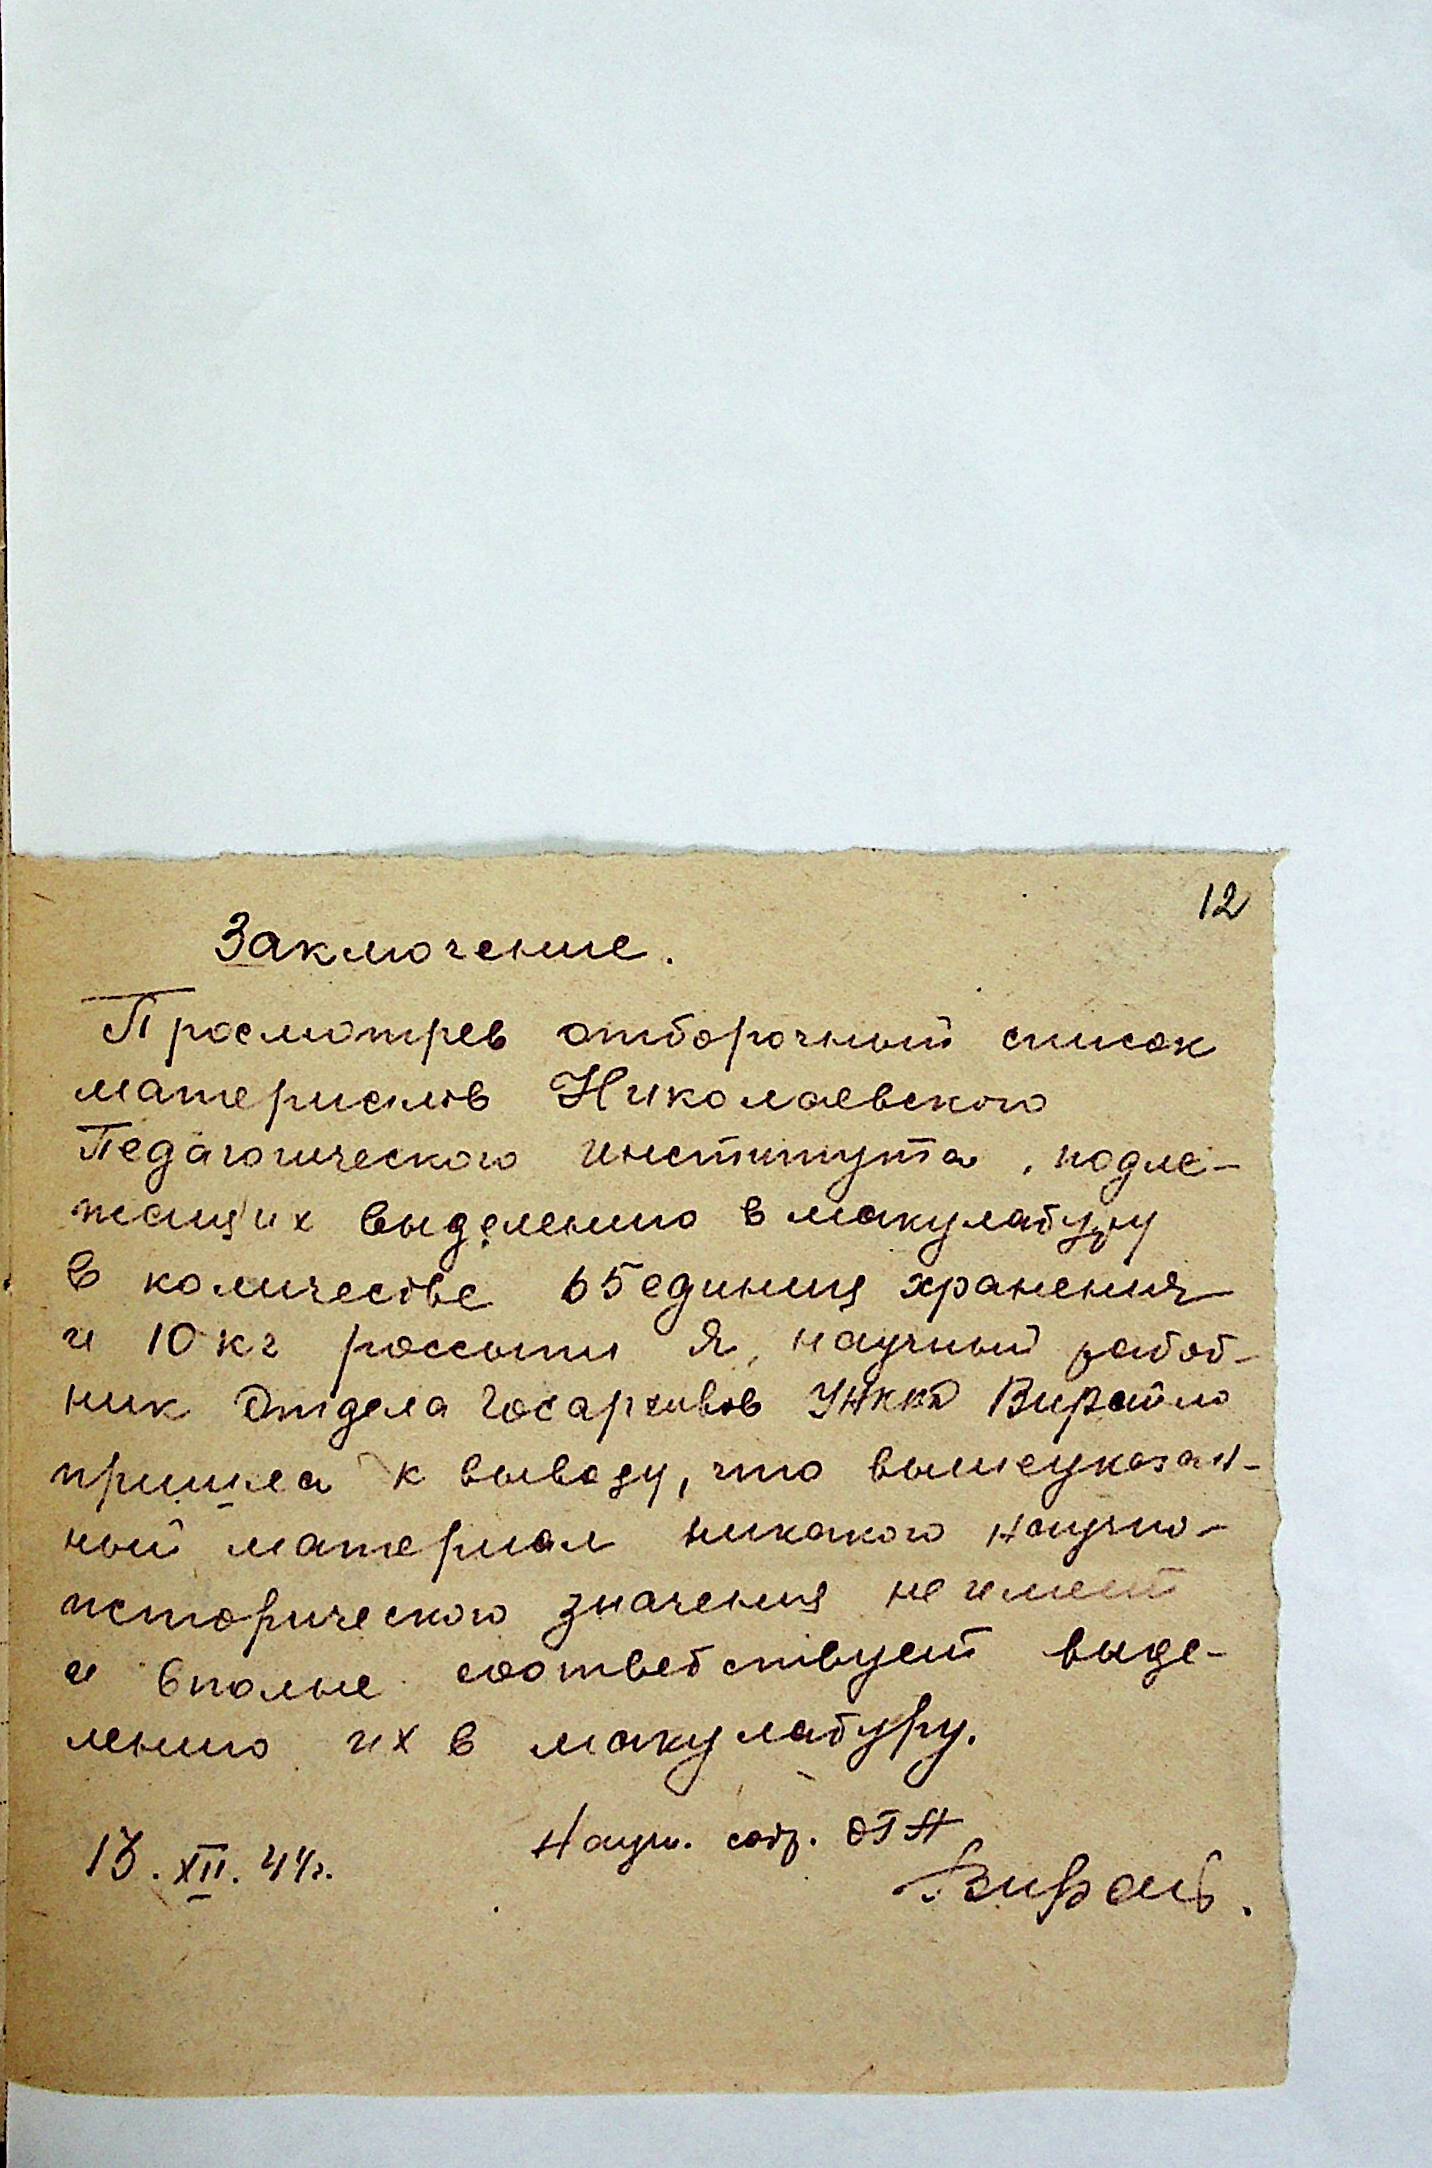 12
Заключение.
Просмотрев отборочный список
материалов Николаевского
Педагогического института, подле-
жащих выделению в макулатуру
в количестве 65 единиц хранения
и 10 кг россыпи я, научный работ-
ник Отдела Госархивов УНКВД
пришла к выводу, что вышеуказан-
ный материал никакого научно-
исторического значения не имеет
и вполне соответствует выде-
лению их в макулатуру.
Научн. сотр. ОГА
13.XII.44г.